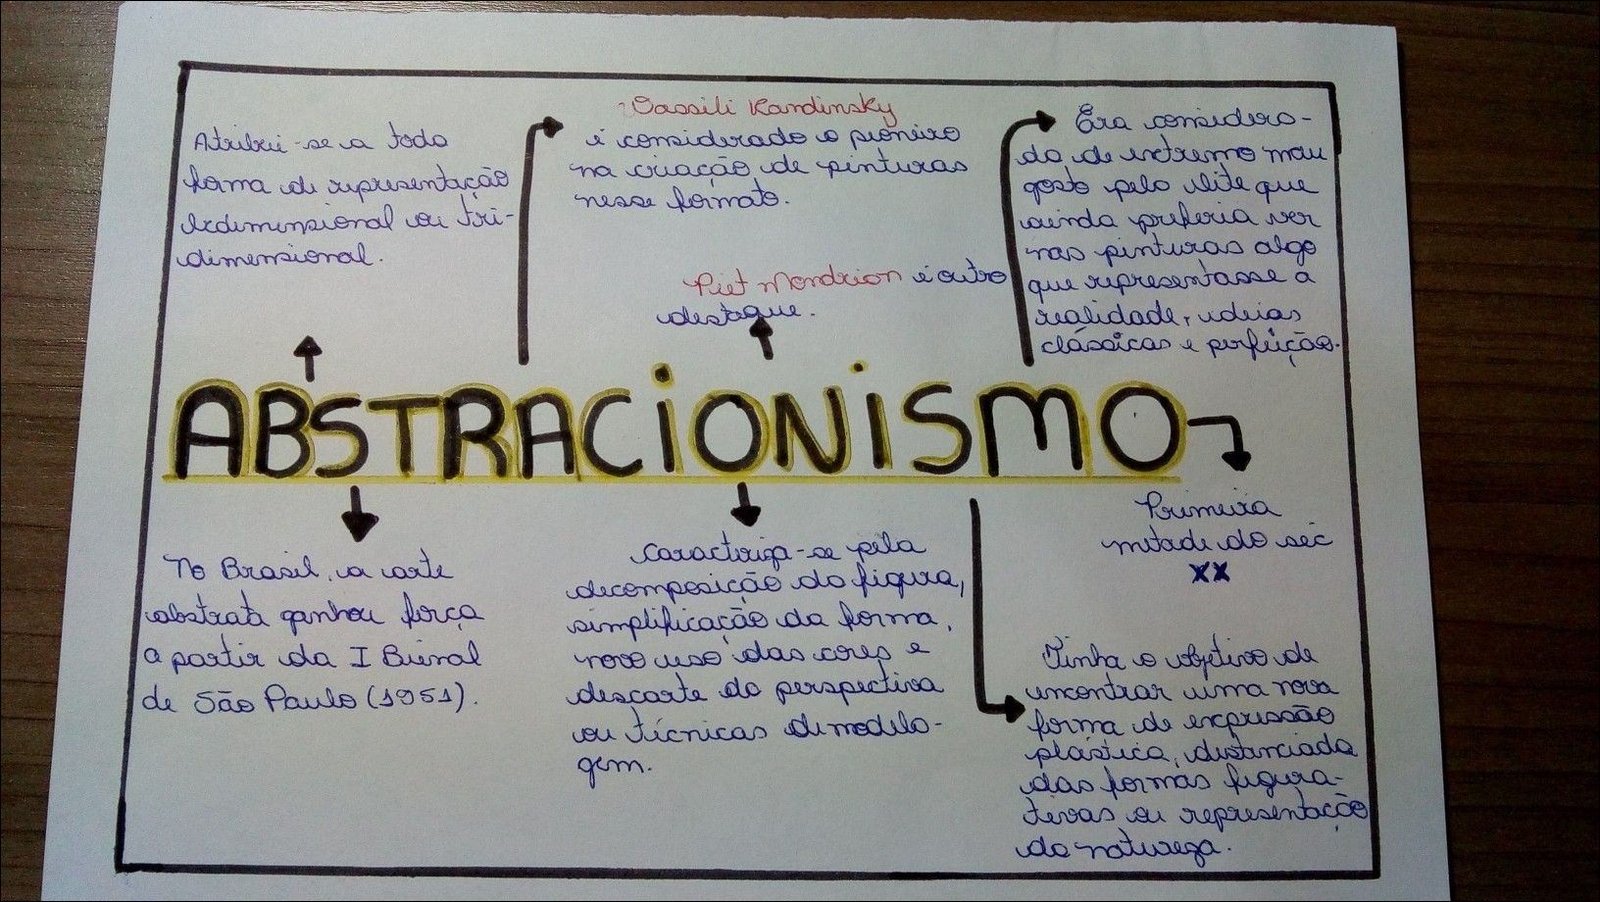 Atribui-se a toda
forma de representação
bidimensional ou tri-
dimensional.
Vassili Kandinsky
é considerado o pioneiro
na criação de pinturas
nesse formato.
Piet Mondrian é outro
destaque.
Era considera-
da de extremo mau
gosto pela elite que
ainda preferia ver
nas pinturas algo
que representasse a
realidade, ideias
clássicas e perfeição.
ABSTRACIONISMO
No Brasil, a arte
abstrata ganhou força
a partir da I Bienal
de São Paulo (1951).
Caracteriza-se pela
decomposição da figura,
simplificação da forma,
novo uso das cores e
descarte da perspectiva
ou técnicas de modela-
gem.
Primeira
metade do séc
XX
Tinha o objetivo de
encontrar uma nova
forma de expressão
plástica, distanciada
das formas figura-
tivas ou representação
da natureza.